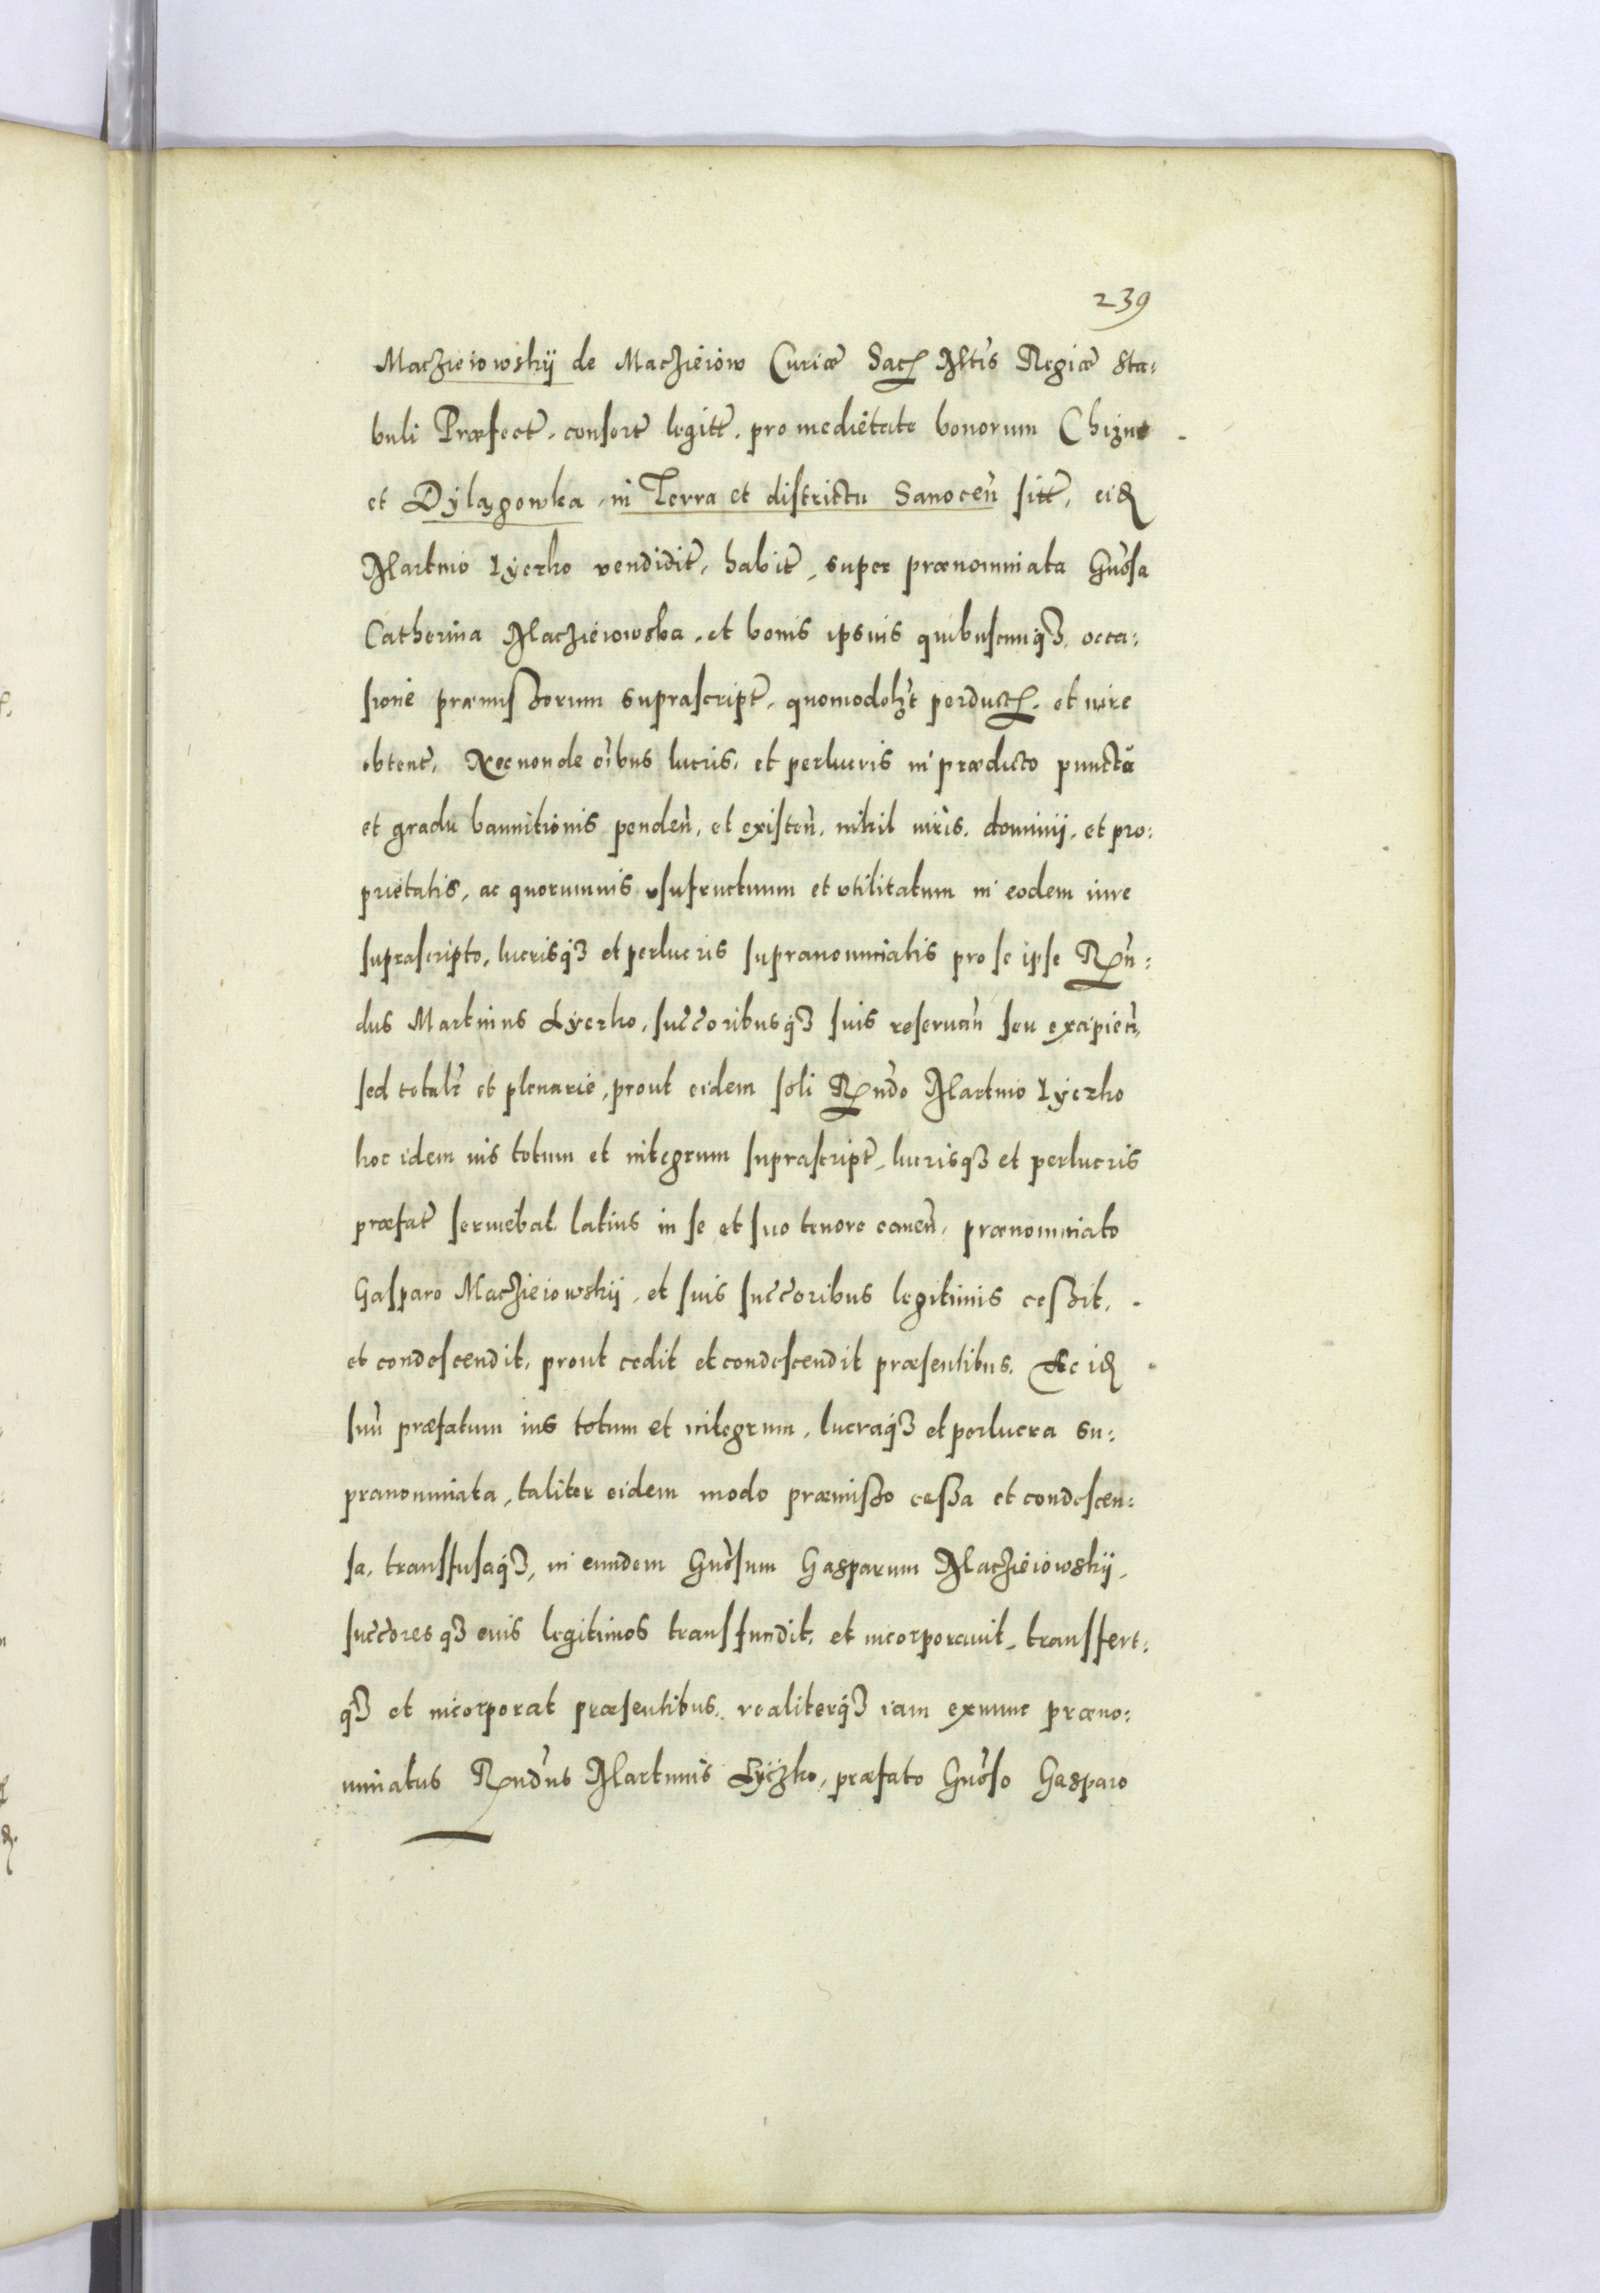 239
Maczieiowskÿ de Maczieiow Curiæ Sacꝝ Mtis Regiæ Sta:
buli Præfect, consort legitt, pro medietate bonorum Chigne
et Dÿlągowka, in Terra et districtu Sanocen sitt, eid
Martino Lyczko vendidit, habit, super prænominata Gnosa
Catherina Maczieiowska, et bonis ipsius quibuscunqȝ, occa:
sione præmissorum suprascript, quomodolzt perductꝝ, et iure
obtent, Nec non de oibus lucris, et perlucris in prædicto puncto
et gradu bannitionis penden, et existen, nihil iuris, dominij, et pro:
prietatis, ac quorumuis vsufructuum et vtilitatum in eodem iure
suprascripto, lucrisqȝ et perlucris supranominatis pro se ipse Rn:
dus Martinus Lÿczko, succoribusqȝ suis reseruan seu excipien,
sed totalr et plenarie, prout eidem soli Rndo Martino Lyczko
hoc idem ius totum et integrum suprascript, lucrisqȝ et perlucris
præfat seruiebat latius in se et suo tenore canen, prænominato
Gasparo Maczieiowskÿ, et suis succoribus legitimis cessit,
et condescendit, prout cedit et condescendit præsentibus. Ac id
suu præfatum ius totum et integrum, lucraqȝ et perlucra su:
pranominata, taliter eidem modo præmisso cessa et condescen:
sa, transfusaqȝ, in eundem Gnosum Gasparum Maczieiowskÿ,
succoresqȝ eius legitimos transfundit, et incorporauit, transfert:
qȝ et incorporat præsentibus, realiterqȝ iam exnunc præno:
minatus Rndus Martinus Lÿczko, præfato Gnoso Gasparo